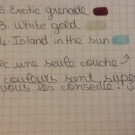 3 Exotic grenade
3. White gold
4. Island in the sun
ec une seule couche →
couleurs sont supe
vous les conseille!